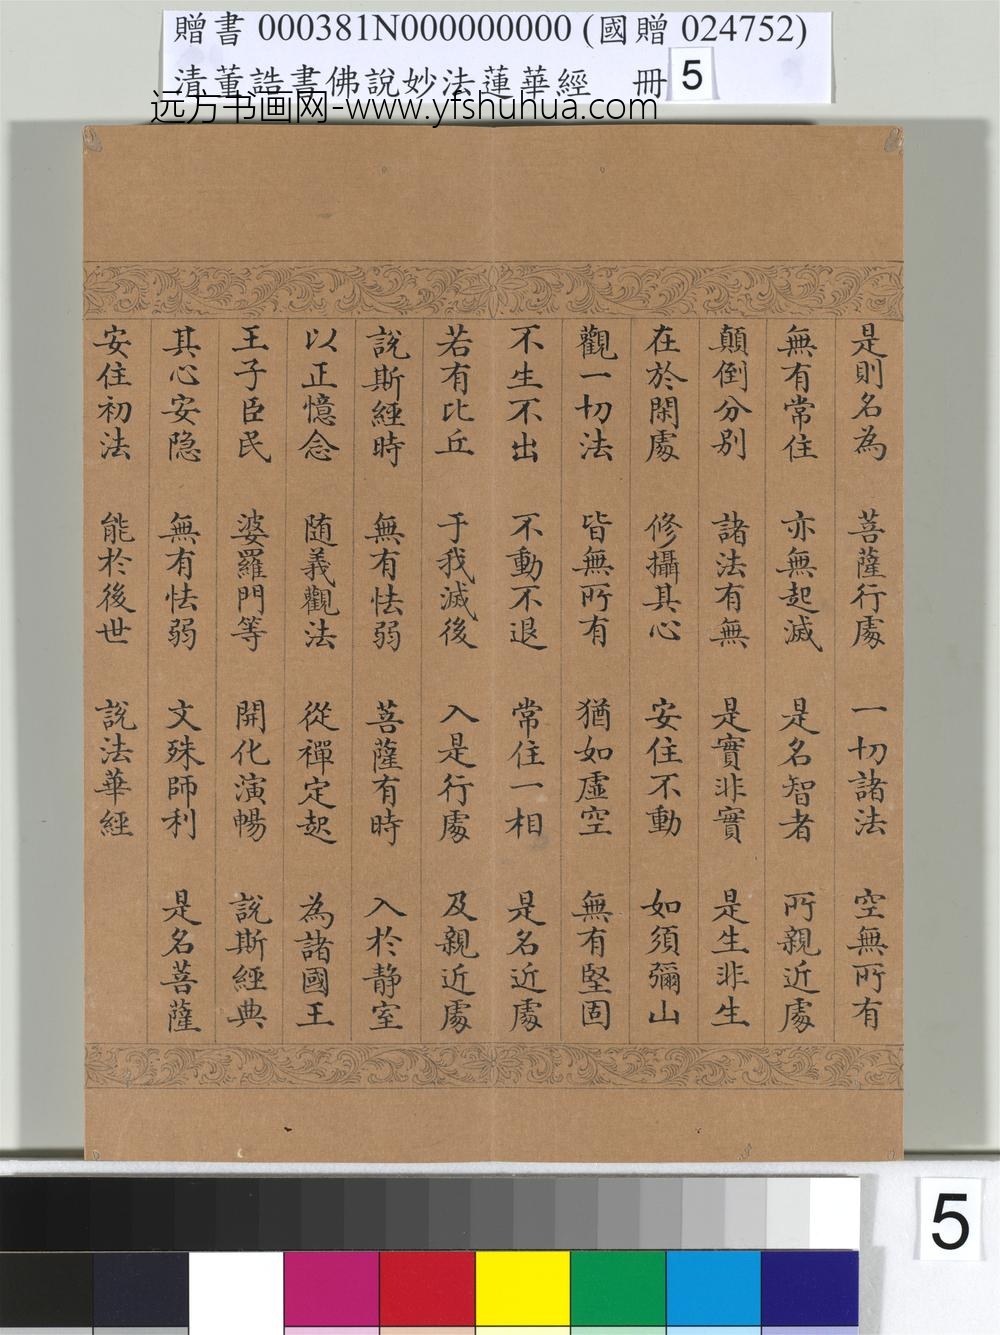 贈書 000381N000000000 (國贈 024752)
清董誥書佛說妙法蓮華經 冊 5
远方书画网-www.yfshuhua.com
是則名為 菩薩行處 一切諸法 空無所有
無有常住 亦無起滅 是名智者 所親近處
顛倒分別 諸法有無 是實非實 是生非生
在於閑處 修攝其心 安住不動 如須彌山
觀一切法 皆無所有 猶如虛空 無有堅固
不生不出 不動不退 常住一相 是名近處
若有比丘 于我滅後 入是行處 及親近處
說斯經時 無有怯弱 菩薩有時 入於靜室
以正憶念 随義觀法 從禪定起 為諸國王
王子臣民 婆羅門等 開化演暢 說斯經典
其心安隐 無有怯弱 文殊師利 是名菩薩
安住初法 能於後世 說法華經
5